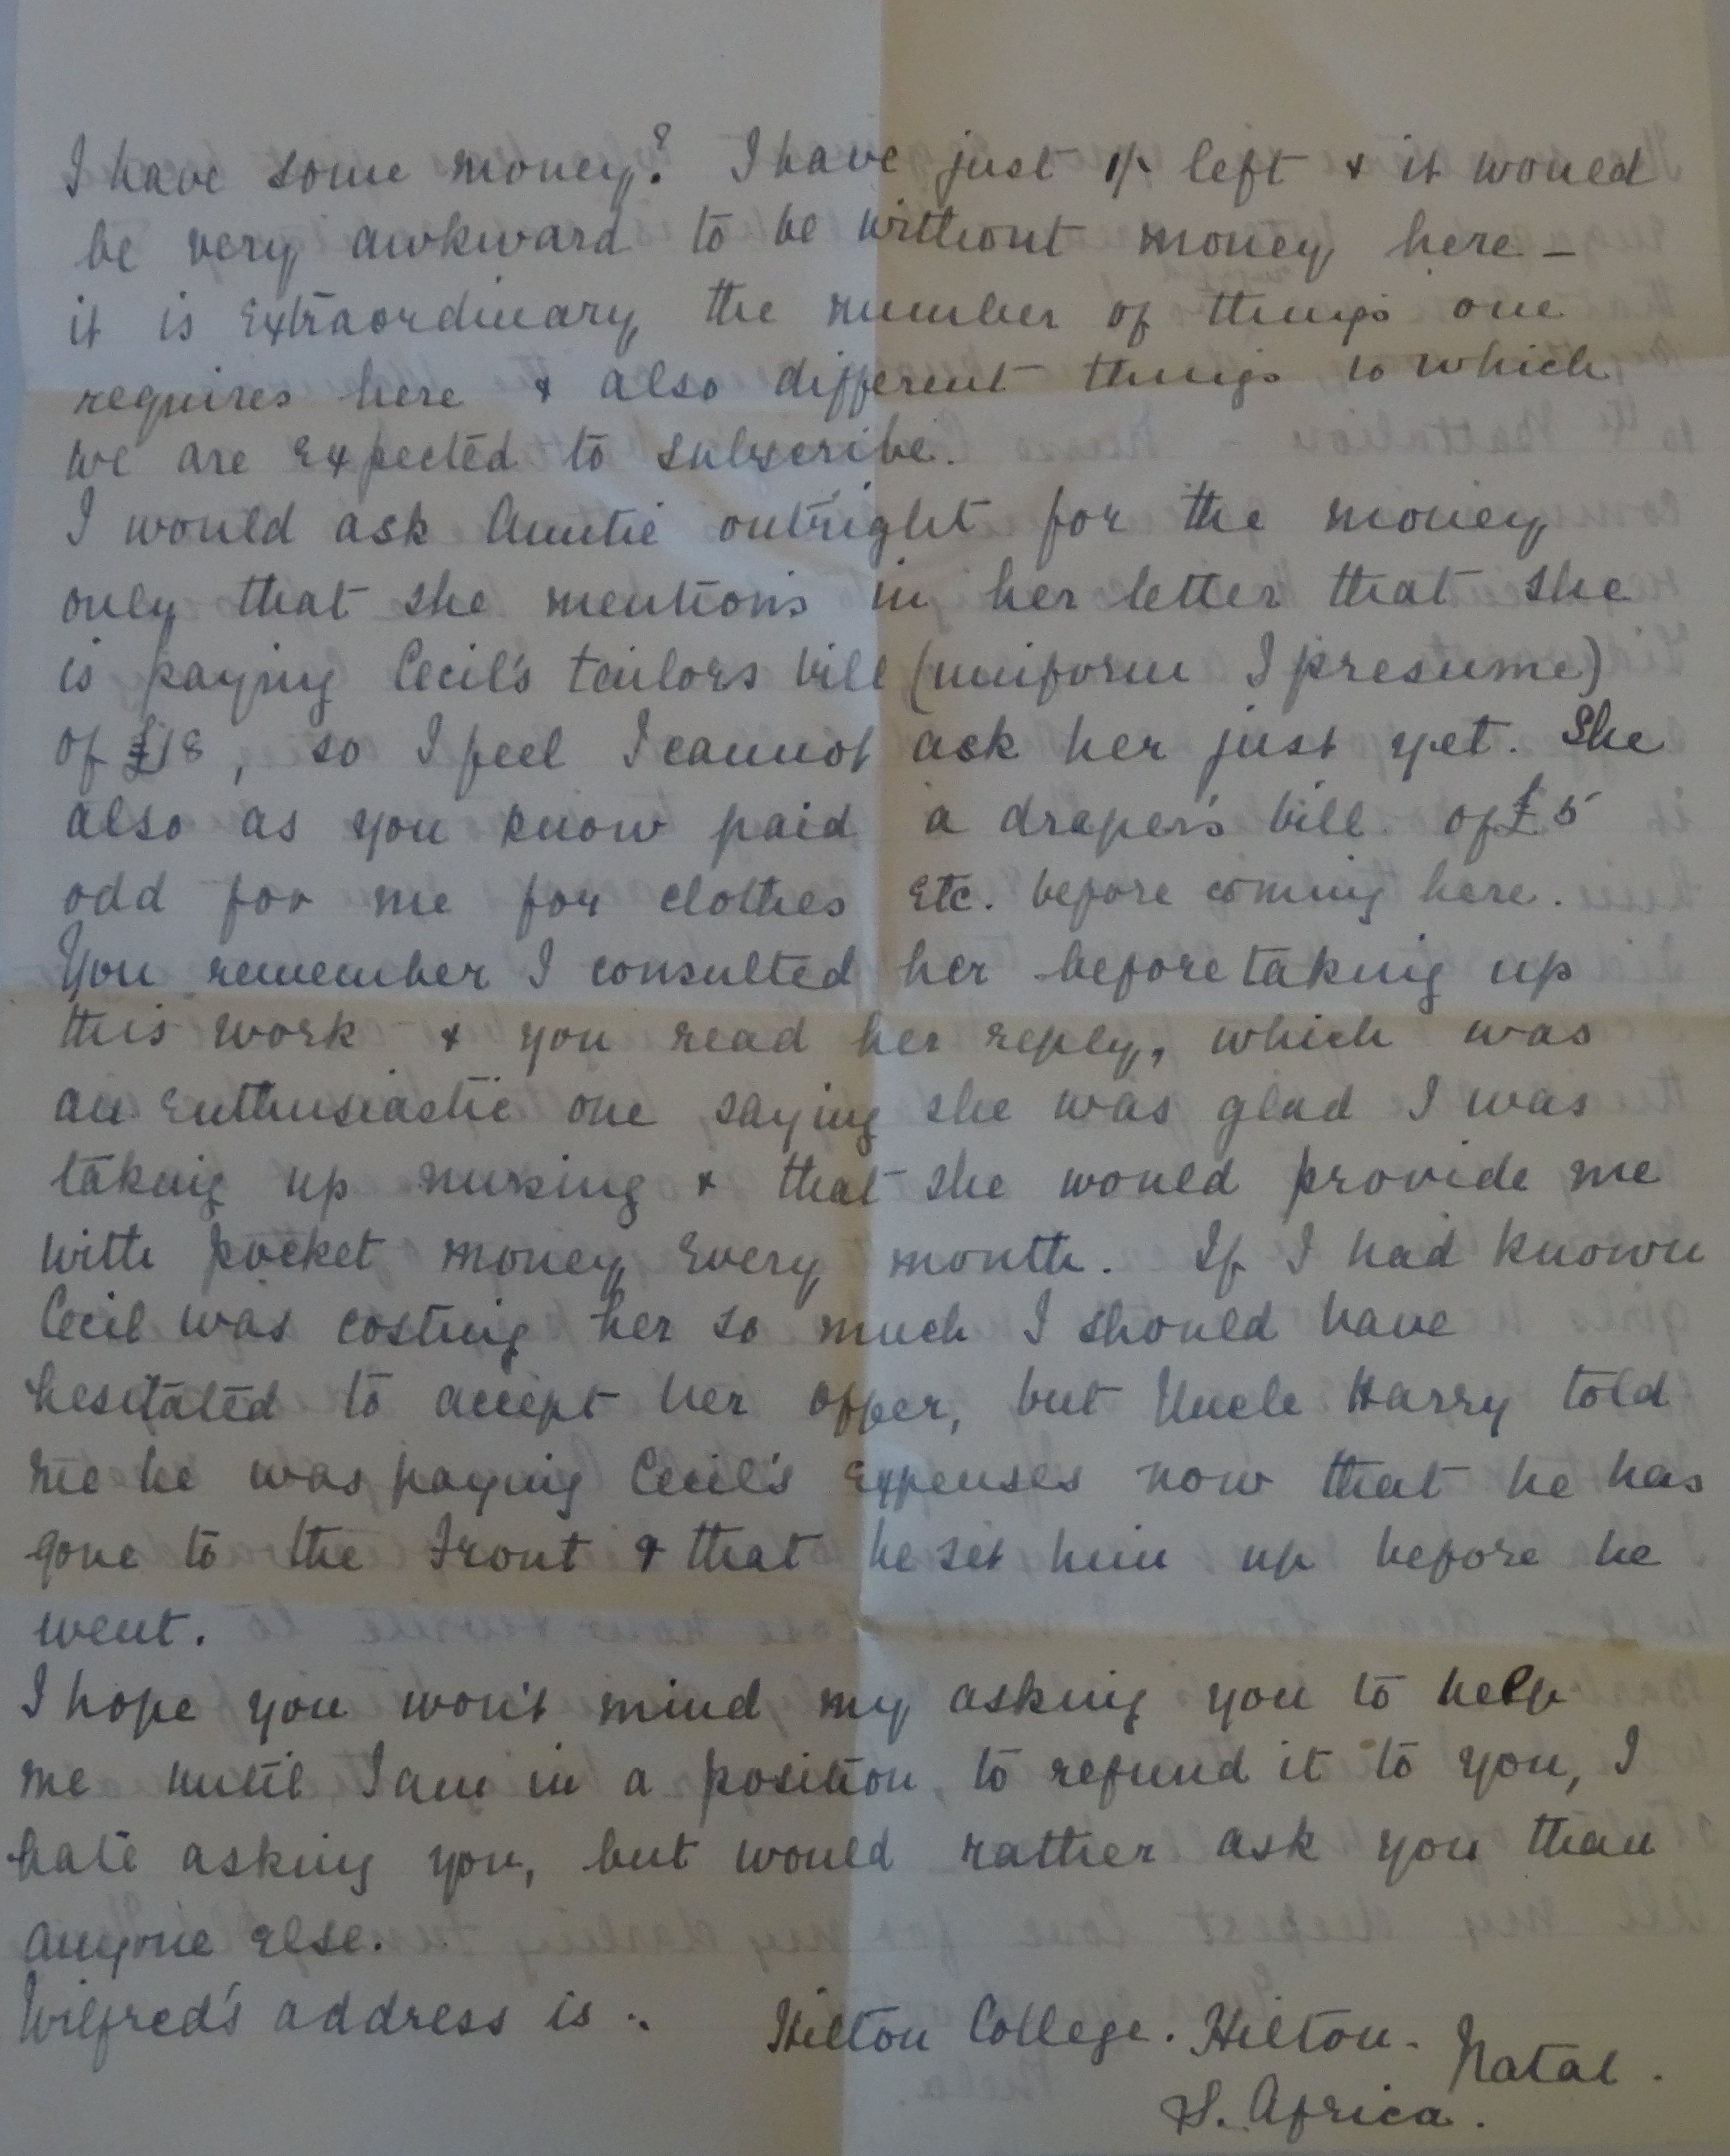 I have some money? I have just 1/- left & it would
be very awkward to be without money here –
it is extraordinary the number of things one
requires here & also different things to which
we are expected to subscribe.
I would ask Auntie outright for the money
only that she mentions in her letter that she
is paying Cecil's tailors bill (uniform I presume)
of £18, so I feel I cannot ask her just yet. She
also as you know paid a draper's bill of £5
odd for me for clothes etc. before coming here.
You remember I consulted her before taking up
this work & you read her reply, which was
an enthusiastic one saying she was glad I was
taking up nursing & that she would provide me
with pocket money every month. If I had known
Cecil was costing her so much I should have
hesitated to accept her offer, but Uncle Harry told
me he was paying Cecil's expenses now that he has
gone to the Front & that he set him up before he
went.
I hope you won't mind my asking you to help
me until I am in a position, to refund it to you, I
hate asking you, but would rather ask you than
anyone else.
Wilfred's address is :. Hilton College. Hilton. Natal.
S. Africa.